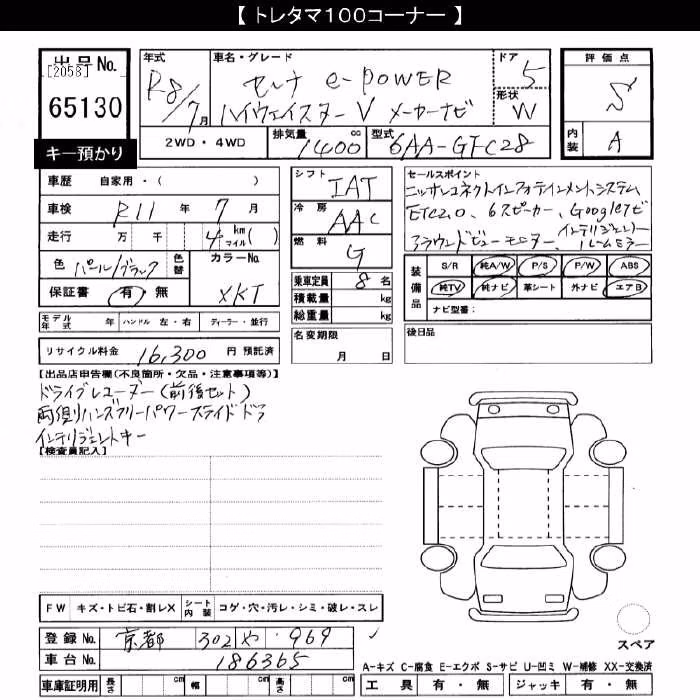 【 トレタマ100コーナー 】
出品No.
[2058]
65130
キー預かり
年式
R8/7月
車名・グレード
セレナ e-POWER
ハイウェイスターV メーカーナビ
ドア
5
形状
W
評価点
S
内装
A
2WD・4WD
排気量
1400 cc
型式
6AA-GFC28
車歴 自家用・( )
車検 R11 年 7 月
走行 万 千 4 km マイル ( )
色 パール/ブラック
色替
カラーNo.
XKT
保証書 有・無
モデル年式 年 ハンドル 左・右 ディーラー・並行
リサイクル料金 16,300 円 預託済
シフト
IAT
冷房
AAC
燃料
G
乗車定員 8 名
積載量 kg
総重量 kg
名変期限
月 日
セールスポイント
ニッサンコネクトインフォテインメントシステム
ETC2.0、6スピーカー、Googleナビ
アラウンドビューモニター、インテリジェントルームミラー
装備品
S/R 純A/W P/S P/W ABS
純TV 純ナビ 革シート 外ナビ エアB
ナビ型番:
後日品
【出品店申告欄(不良箇所・欠品・注意事項等)】
ドライブレコーダー(前後セット)
両側ハンズフリーパワースライドドア
インテリジェントキー
【検査員記入】
FW キズ・トビ石・割レX シート内装 コゲ・穴・汚レ・シミ・破レ・スレ
登録No. 京都 302 や 969
車台No. 186365
車庫証明用 長さ cm 幅 cm 高さ cm
スペア
A-キズ C-腐食 E-エクボ S-サビ U-凹ミ W-補修 XX-交換済
工具 有・無 ジャッキ 有・無